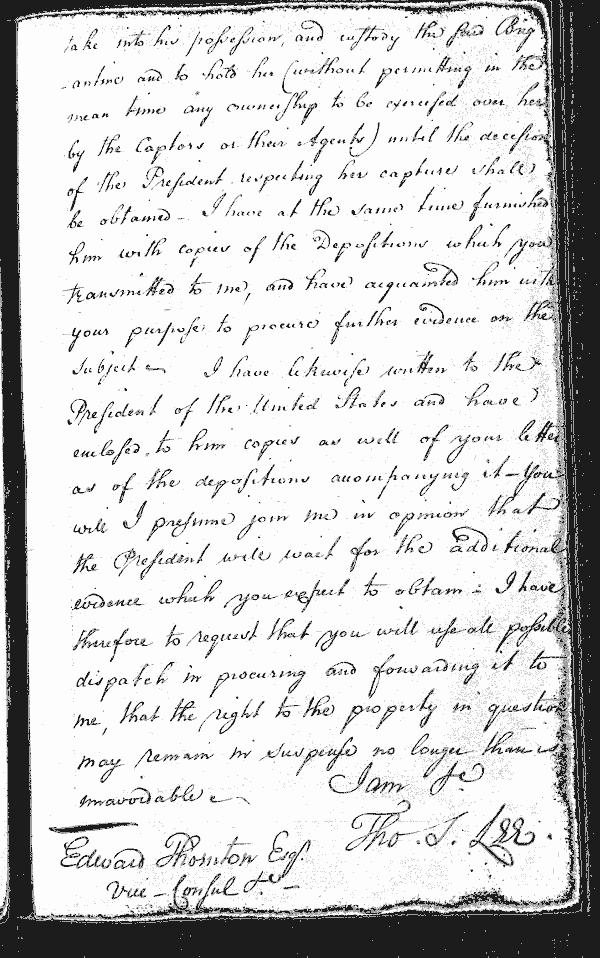 take into his possession, and custody the said Brig
-antine and to hold her (without permitting in the
mean time any ownership to be exercised over her
by the Captors or their Agents) until the decesion
of the President respecting her capture shall
be obtained - I have at the same time furnished
him with copies of the Depositions which you
transmitted to me, and have acquainted him with
your purpose to procure further evidence on the
subject - I have likewise written to the
President of the United States and have
enclosed to him copies as well of your letter
as of the depositions accompanying it - You
will I presume join me in opinion that
the President will wait for the additional
evidence which you expect to obtain - I have
therefore to request that you will use all possible
dispatch in procuring and forwarding it to
me, that the right to the property in question
may remain in suspense no longer than is
unavoidable -
I am &c
Tho. S. Lee.
Edward Thornton Esqr.
Vice-Consul &c -